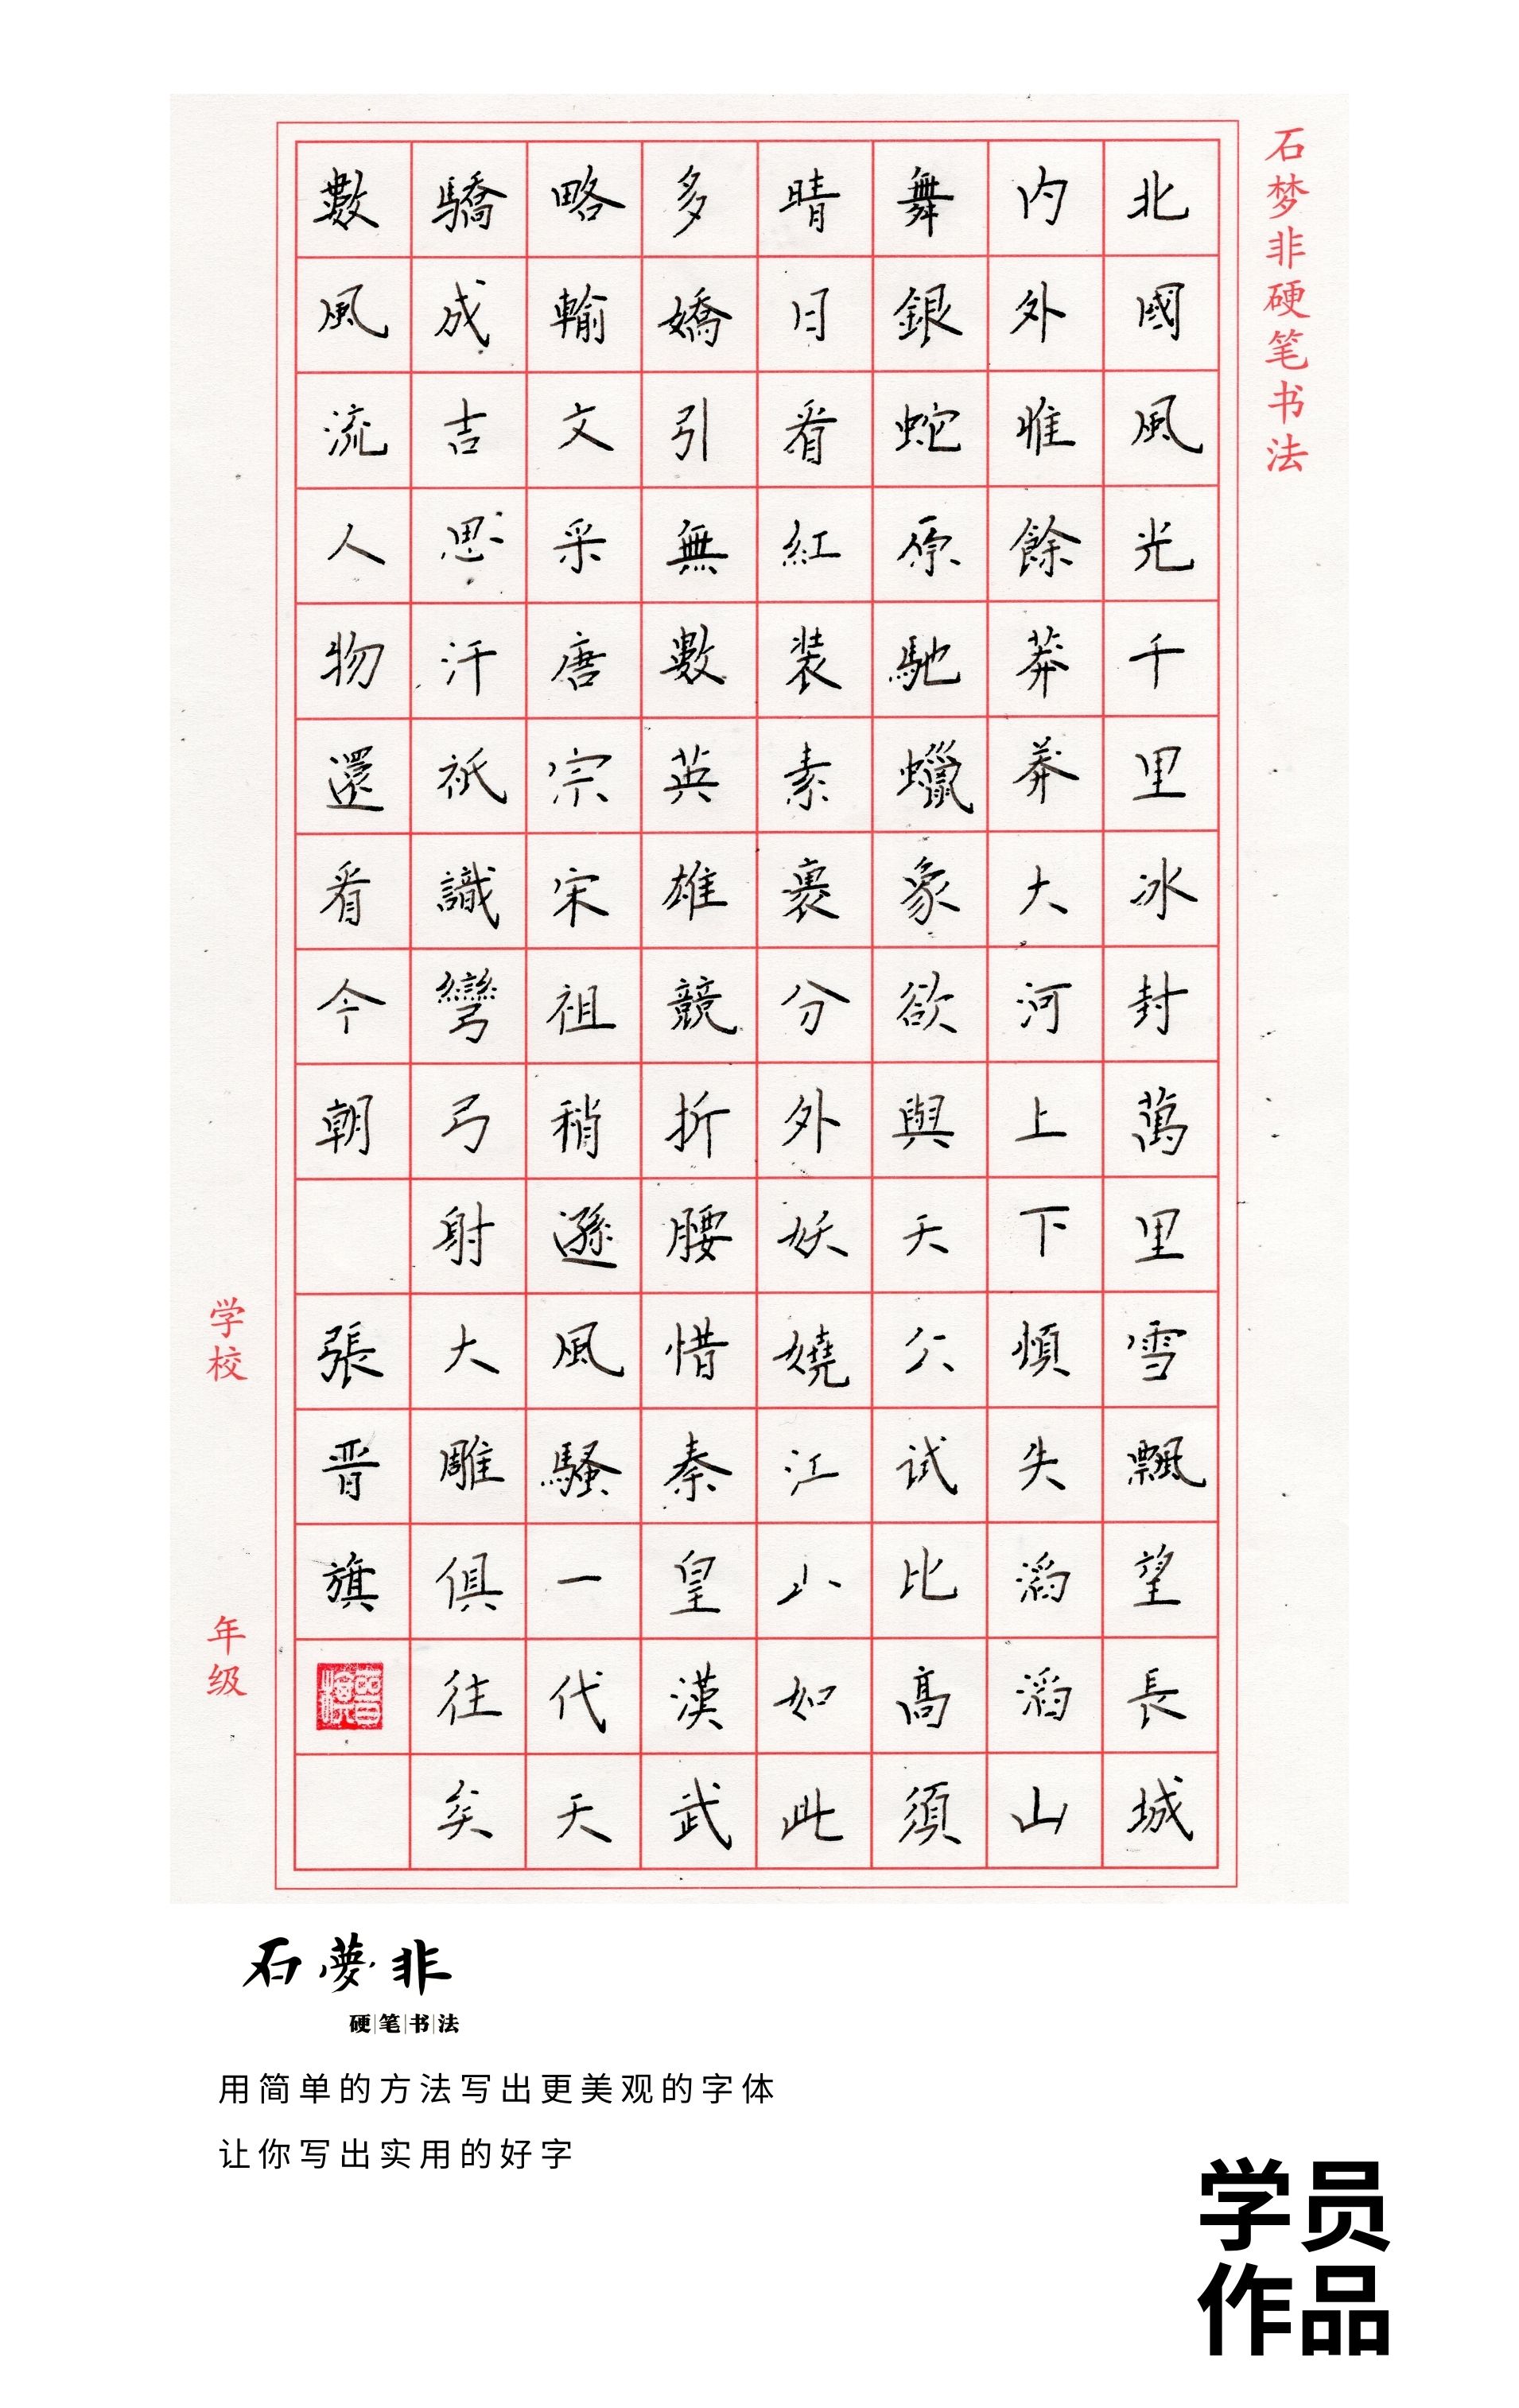 石梦非硬笔书法
北國風光千里冰封萬里雪飄望長城
内外惟餘莽莽大河上下頓失滔滔山
舞銀蛇原馳蠟象欲與天公試比高須
晴日看紅装素裹分外妖嬈江山如此
多嬌引無數英雄競折腰惜秦皇漢武
略輸文采唐宗宋祖稍遜風騷一代天
驕成吉思汗祇識彎弓射大雕俱往矣
數風流人物還看今朝 張晋旗
学校 年级
石夢非
硬笔书法
用简单的方法写出更美观的字体
让你写出实用的好字
学员
作品